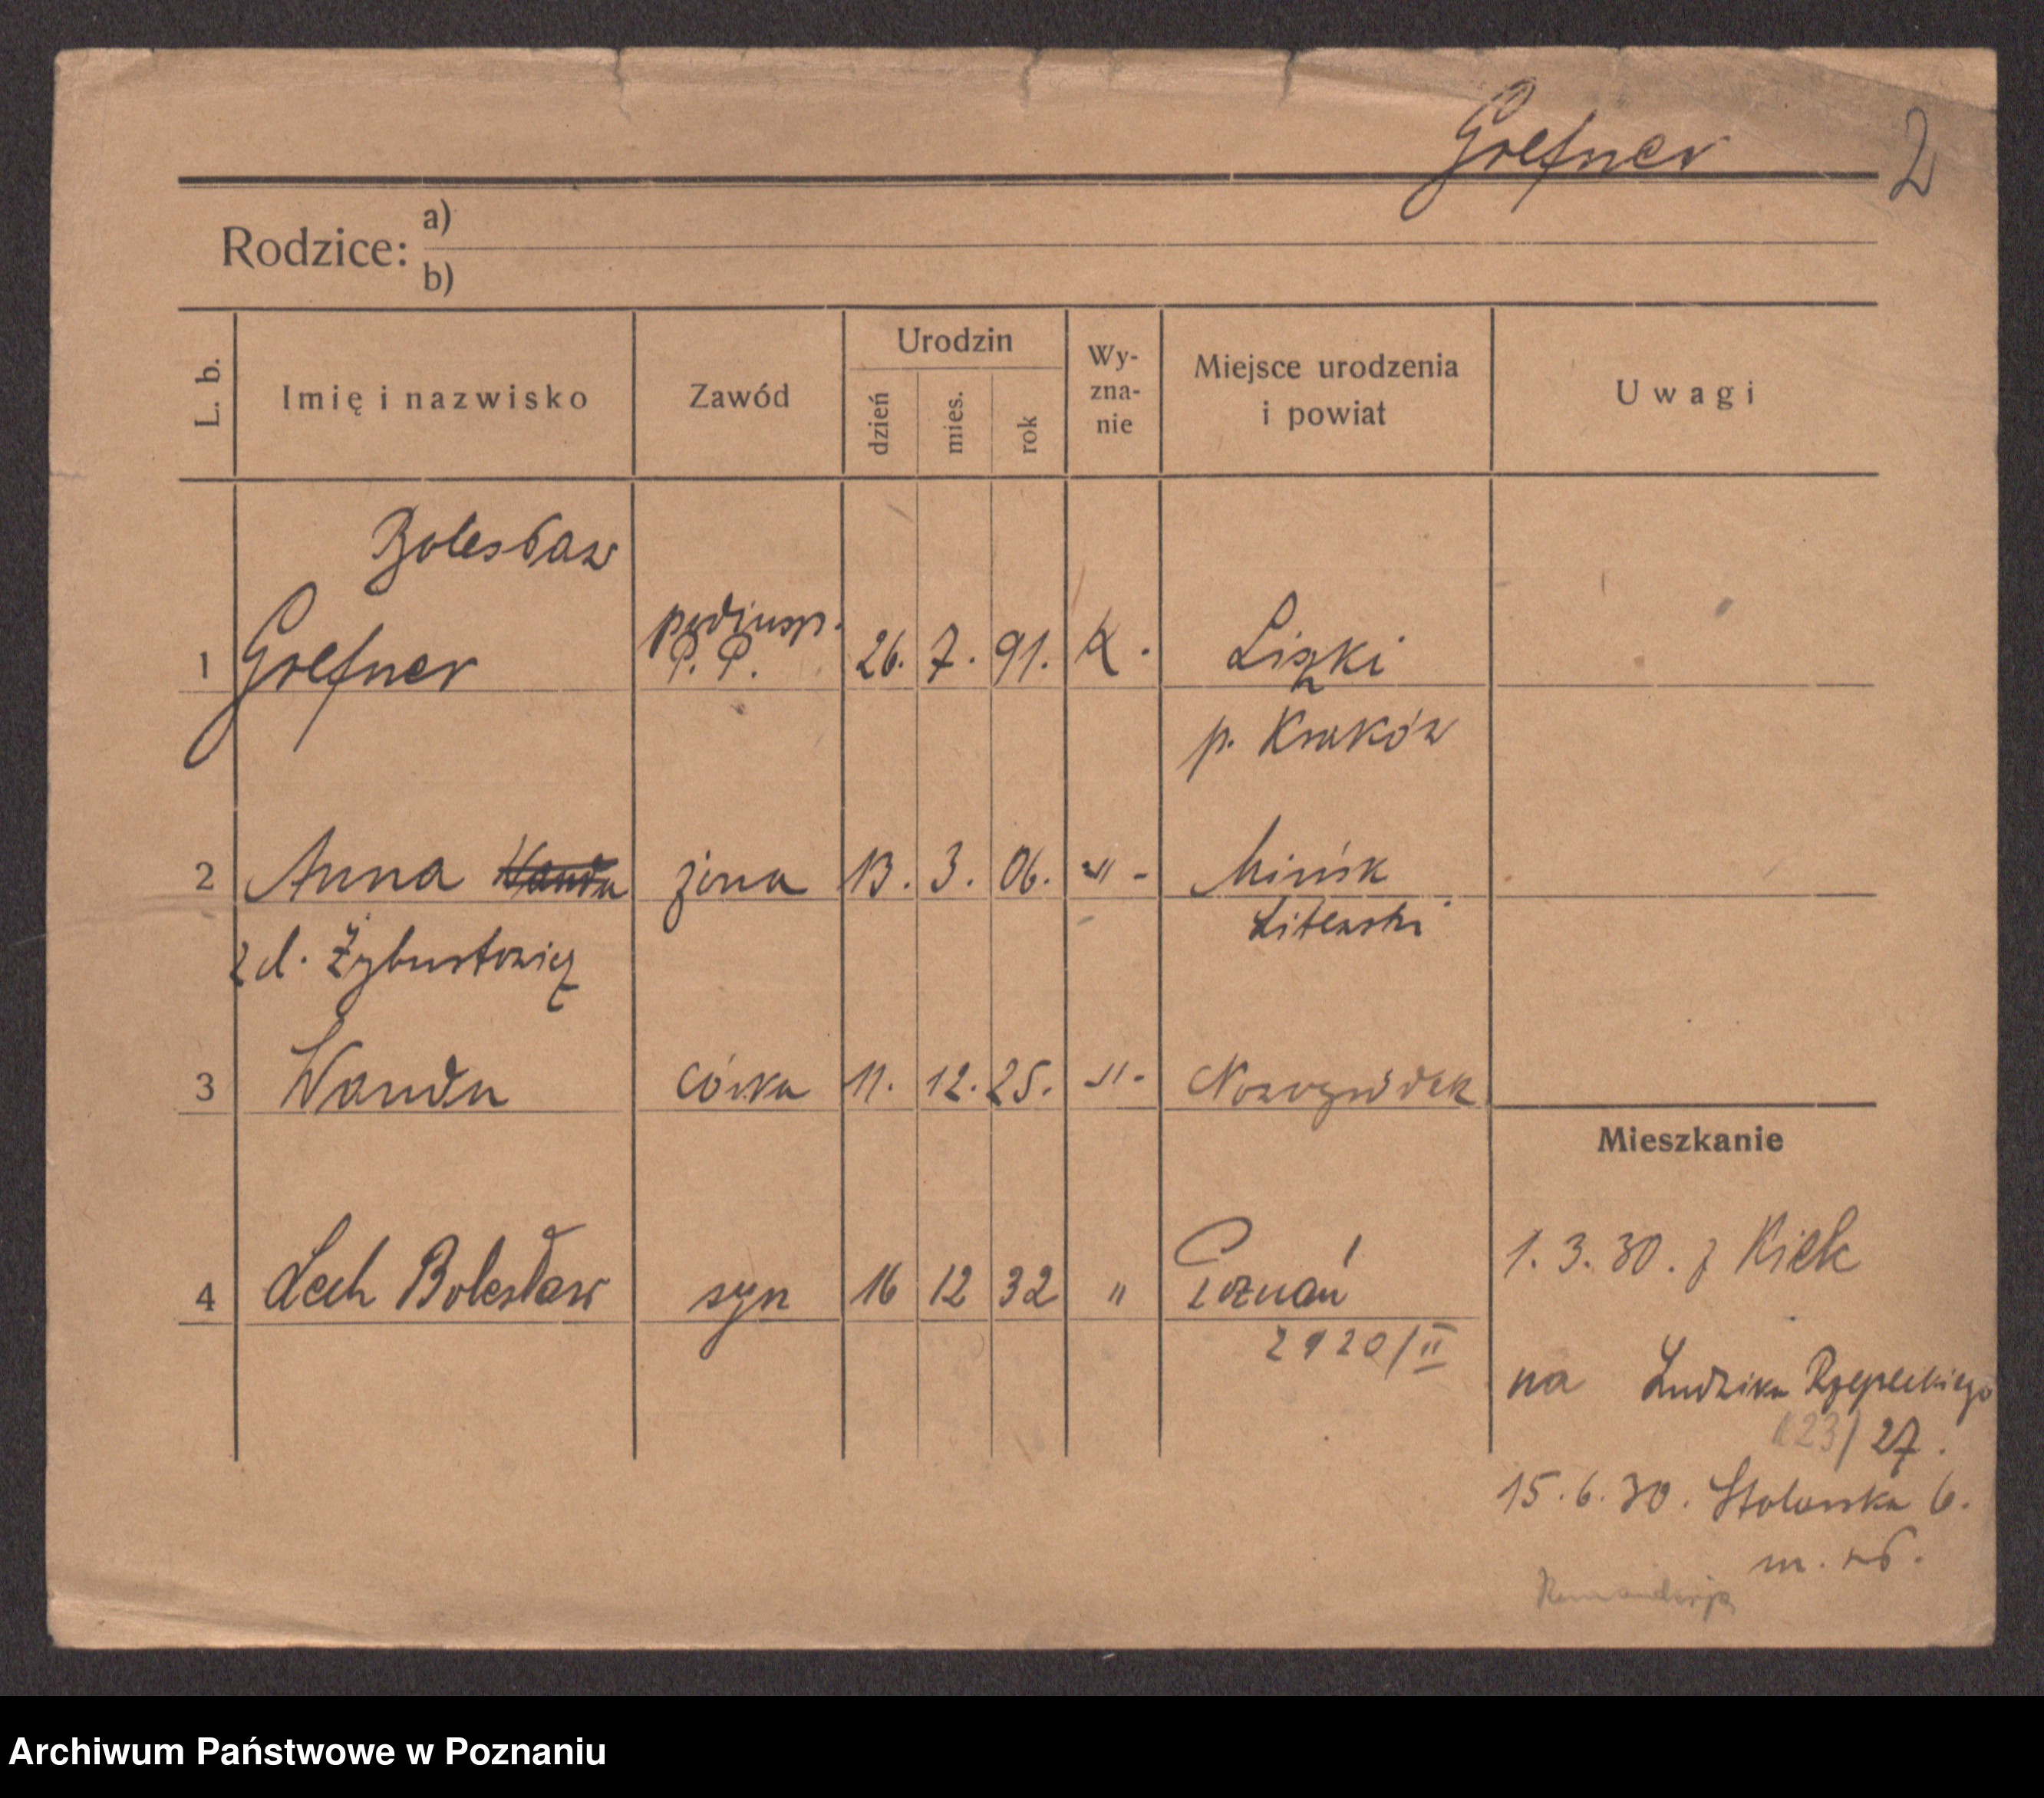 Grefner 2
Rodzice: a)
b)
L. b. Imię i nazwisko Zawód Urodzin dzień mies. rok Wy-zna-nie Miejsce urodzenia i powiat Uwagi
Bolesław
1 Grefner P. P. 26. 7. 91. K. Liszki
p. Kraków
2 Anna Wanda żona 13. 3. 06. -"- Mińsk
Litewski
zd.
3 Wanda córka 11. 12. 25. -"- Nowogródek
Mieszkanie
4 Lech Bolesław syn 16 12 32 " Poznań
1. 3. 30. z Kielc
2920/II
na Ludwika Rzepeckiego
23/27.
15. 6. 30. Stolarska 6.
m.
Archiwum Państwowe w Poznaniu